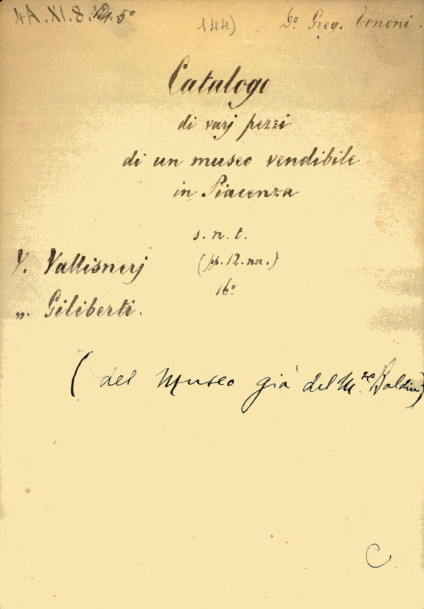 4A. XI. 8. 5°
144)
D. Greg. Tononi.
Catalogo
di varj pezzi
di un museo vendibile
in Piacenza
s. n. t.
V. Vallisnerj (pp. 12. nn.)
„ Giliberti. 16°
( del Museo già del M.se Baldini)
C